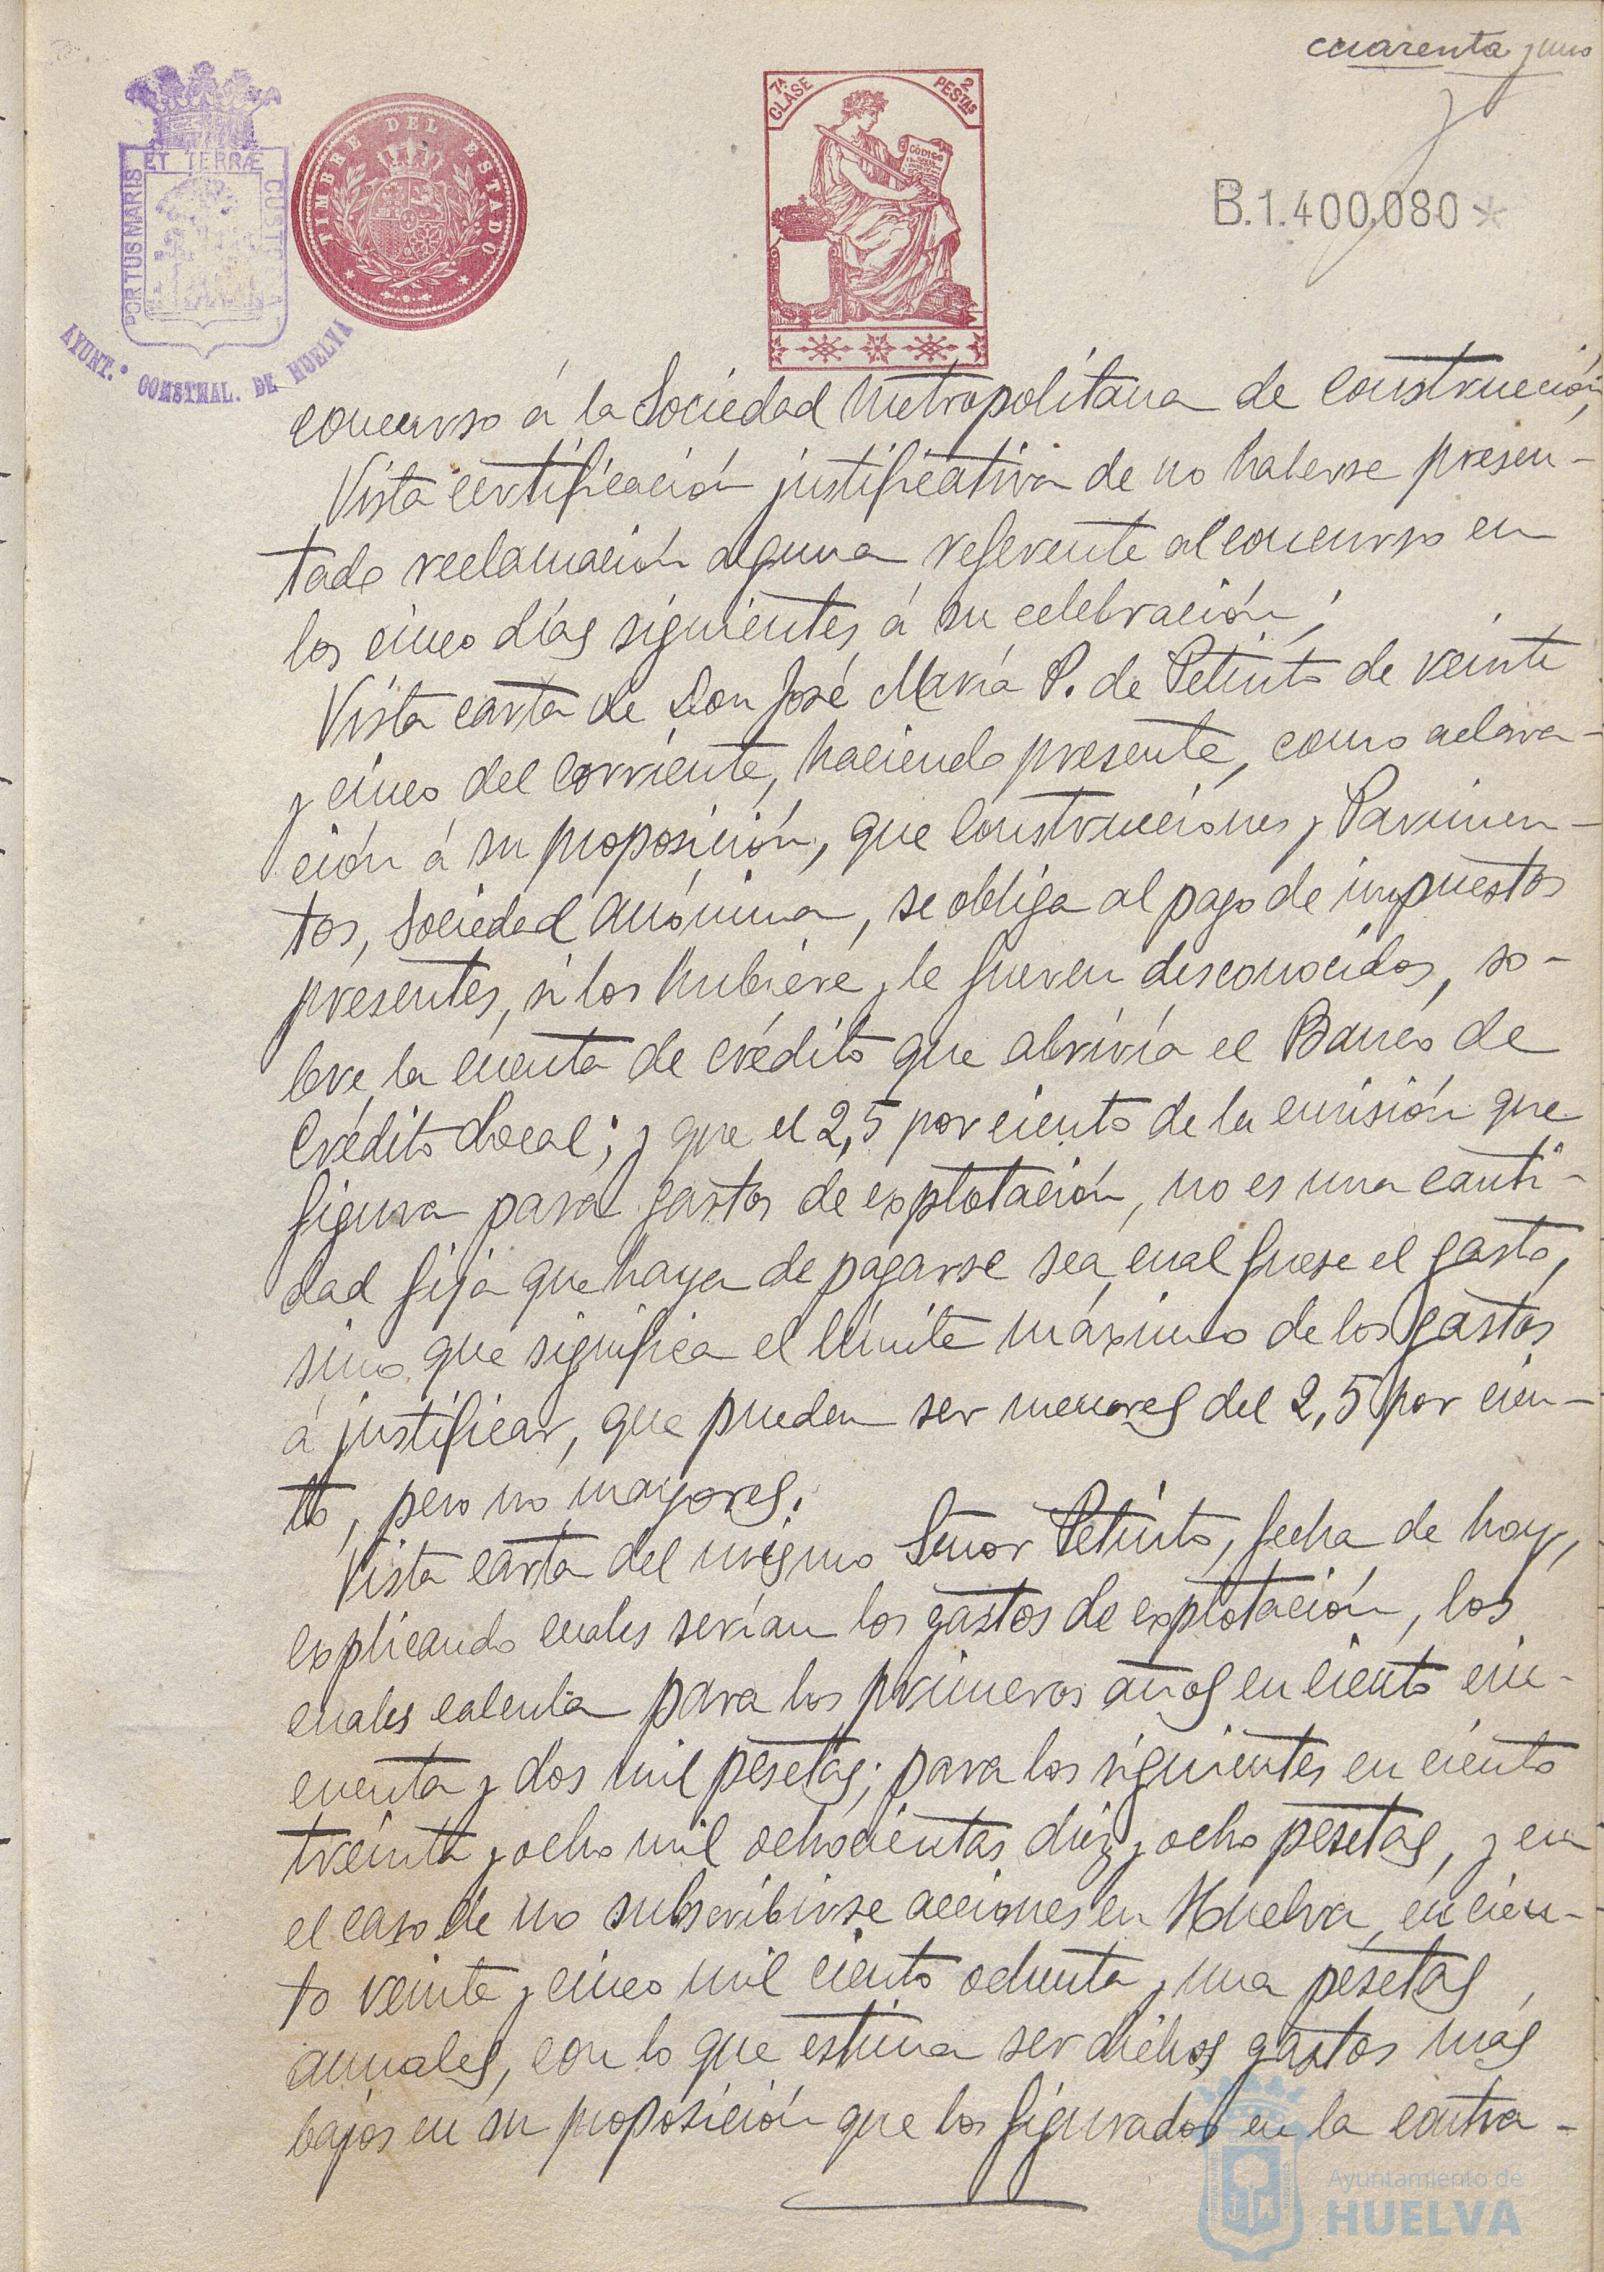 cuarenta y uno
7ª CLASE
2 PESTAS
CODIGO
TIMBRE DEL ESTADO
PORTUS MARIS ET TERRÆ CUSTODIA
AYUNT.º CONSTNAL. DE HUELVA
B.1.400,080*
concurso á la Sociedad Metropolitana de Construcción,
Vista certificación justificativa de no haberse presen-
tado reclamación alguna referente al concurso en
los cinco días siguientes á su celebración;
Vista carta de Don José María P. de Petinto de veinte
y cinco del corriente, haciendo presente, como aclara-
ción á su proposición, que Construcciones y Pavimen-
tos, Sociedad Anónima, se obliga al pago de impuestos
presentes, si los hubiere y le fueren desconocidos, so-
bre la cuenta de crédito que abriría el Banco de
Crédito Local; y que el 2,5 por ciento de la emisión que
figura para gastos de explotación, no es una canti-
dad fija que haya de pagarse sea cual fuese el gasto,
sino que significa el límite máximo de los gastos
á justificar, que pueden ser menores del 2,5 por cien-
to, pero no mayores.
Vista carta del mismo Señor Petinto, fecha de hoy,
explicando cuales serían los gastos de explotación, los
cuales calcula para los primeros años en ciento cin-
cuenta y dos mil pesetas; para los siguientes en ciento
treinta y ocho mil ochocientas diez y ocho pesetas, y en
el caso de no subscribirse acciones en Huelva, en cien-
to veinte y cinco mil ciento ochenta y una pesetas
anuales, con lo que estima ser dichos gastos más
bajos en su proposición que los figurados en la contra-
Ayuntamiento de
HUELVA